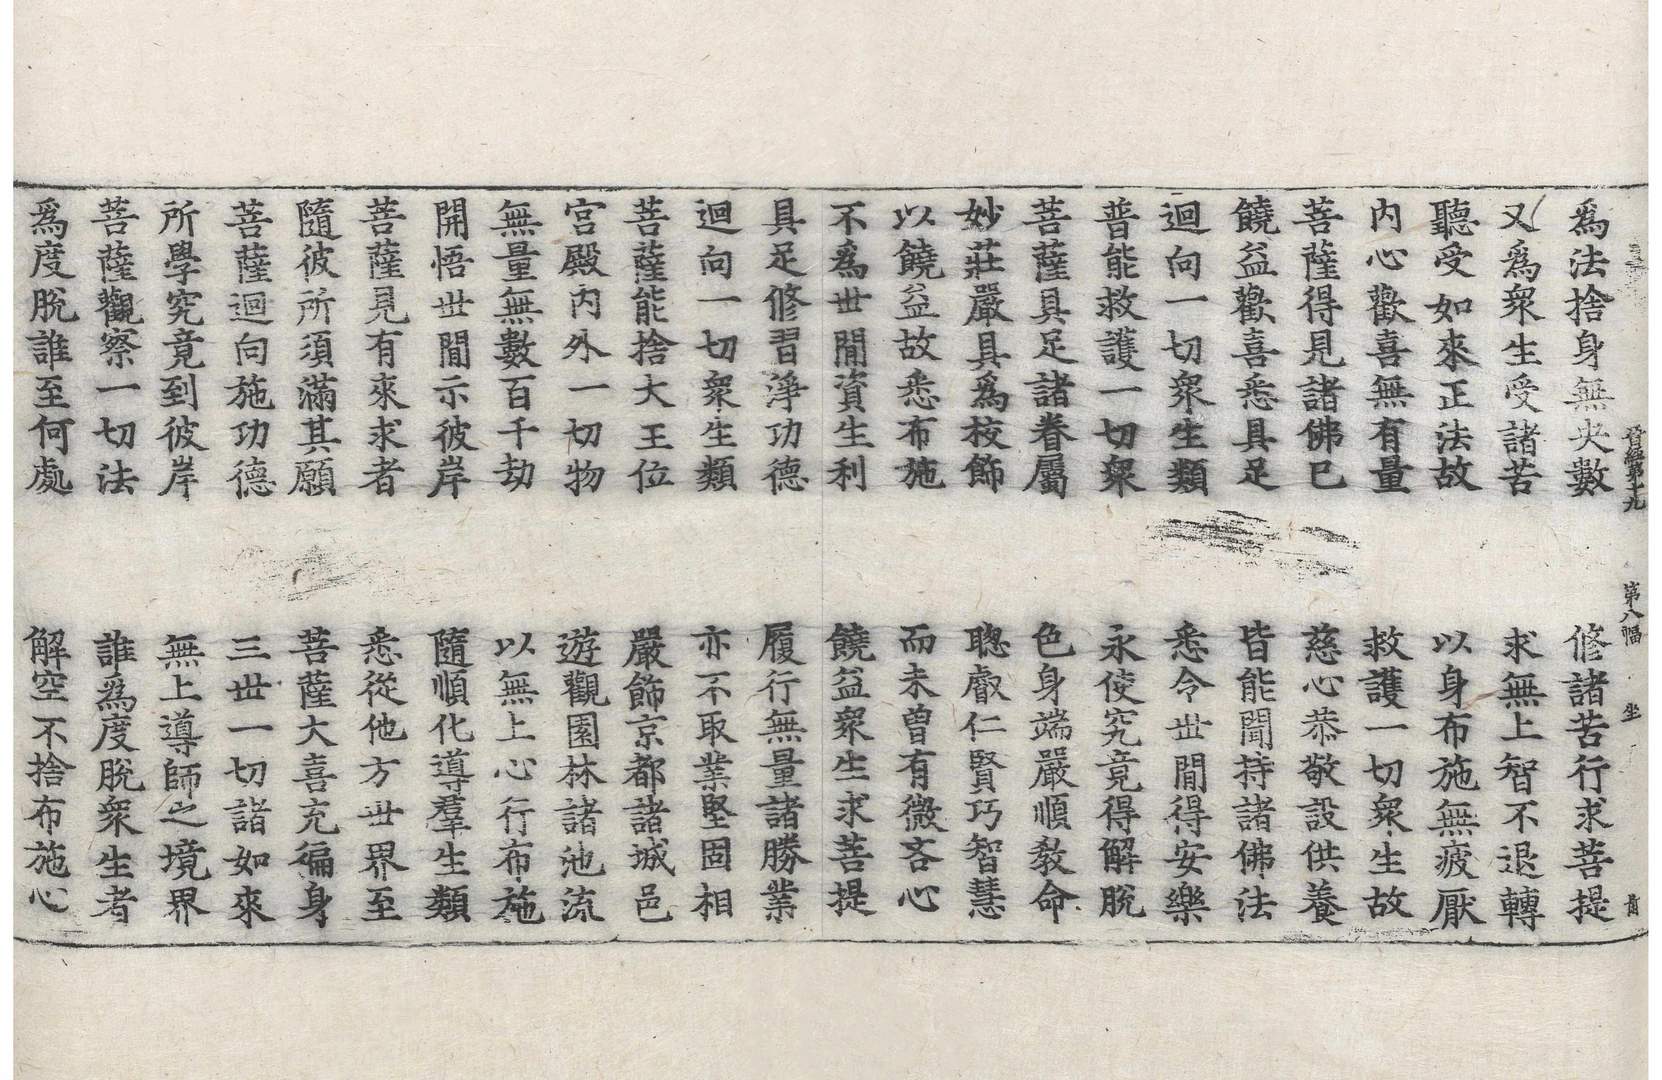 晉經第十九　第八幅　坐
爲法捨身無央數　修諸苦行求菩提
又爲衆生受諸苦　求無上智不退轉
聽受如來正法故　以身布施無疲厭
内心歡喜無有量　救護一切衆生故
菩薩得見諸佛已　慈心恭敬設供養
饒益歡喜悉具足　皆能聞持諸佛法
迴向一切衆生類　悉令世閒得安樂
普能救護一切衆　永使究竟得解脫
菩薩具足諸眷屬　色身端嚴順教命
妙莊嚴具爲校飾　聰叡仁賢巧智慧
以饒益故悉布施　而未曾有微吝心
不爲世閒資生利　饒益衆生求菩提
具足修習淨功德　履行無量諸勝業
迴向一切衆生類　亦不取業堅固相
菩薩能捨大王位　嚴飾京都諸城邑
宮殿内外一切物　遊觀園林諸池流
無量無數百千劫　以無上心行布施
開悟世閒示彼岸　隨順化導羣生類
菩薩見有來求者　悉從他方世界至
隨彼所須滿其願　菩薩大喜充徧身
菩薩迴向施功德　三世一切諸如來
所學究竟到彼岸　無上導師之境界
菩薩觀察一切法　誰爲度脫衆生者
爲度脫誰至何處　解空不捨布施心